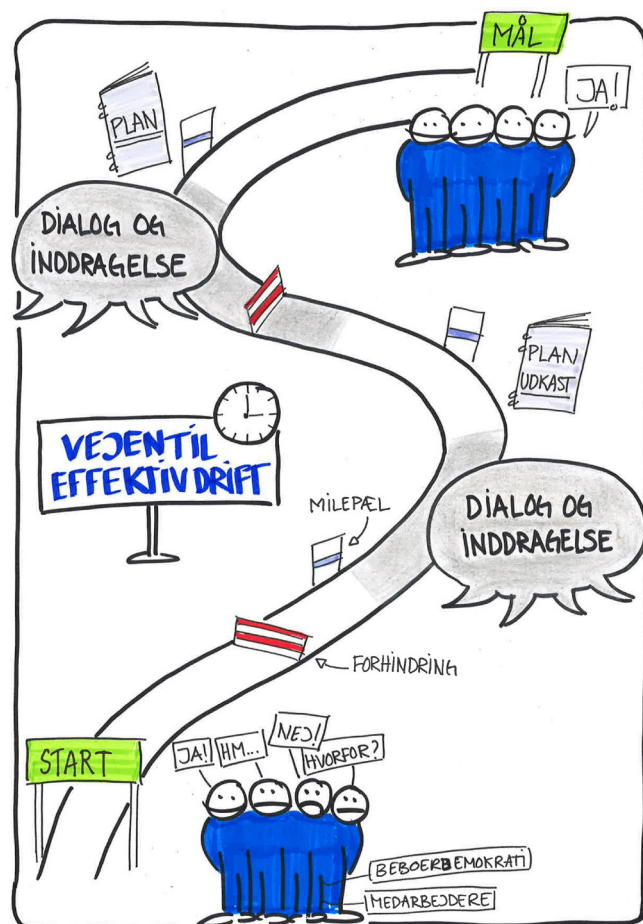 MÅL
JA!
PLAN
DIALOG OG
INDDRAGELSE
PLAN
UDKAST
VEJEN TIL
EFFEKTIV DRIFT
MILEPÆL
DIALOG OG
INDDRAGELSE
FORHINDRING
START
JA!
HM...
NEJ!
HVORFOR?
BEBOERDEMOKRATI
MEDARBEJDERE